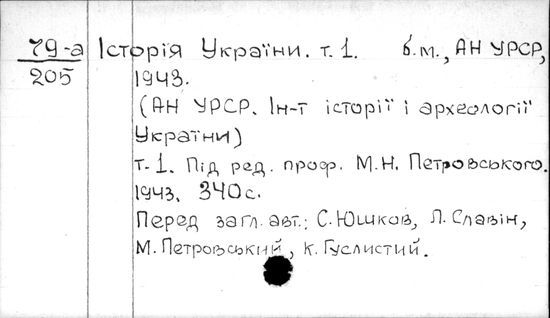 79-а Історія України. т. 1. б.м., АН УРСР,
205 1943.
(АН УРСР. Ін-т історії і археології
України)
т. 1. Під ред. проф. М.Н. Петровського.
1943. 340 с.
Перед загл. авт.: С. Юшков, Л. Славін,
М. Петровський, К. Гуслистий.